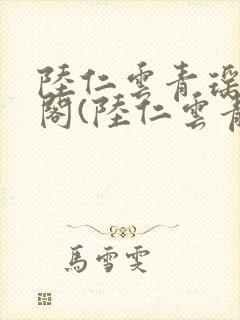 陸仁雲青瑶
閣(陸仁雲青
馬雪雯